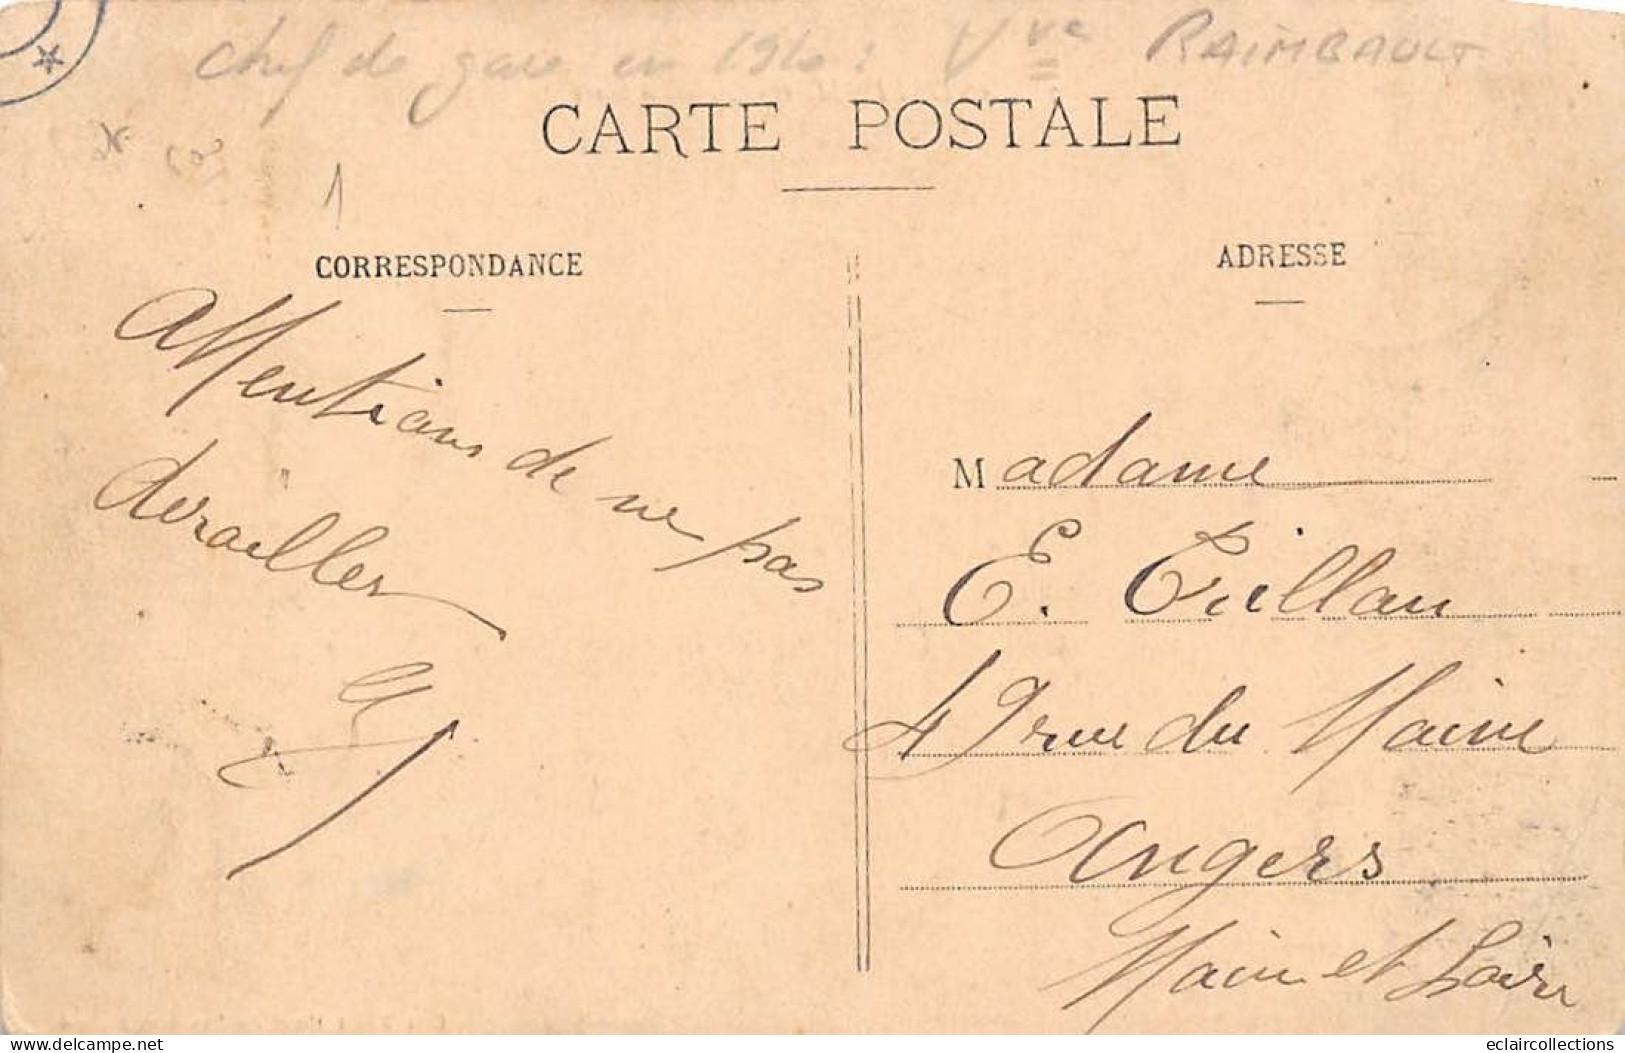 Chef de gare en 1910 : Vve RAIMBAULT
CARTE POSTALE
1
CORRESPONDANCE
ADRESSE
Attentions de ne pas
derailler
Madame
E.
49 rue du Maine
Angers
Maine et Loire
delcampe.net
eclaircollections